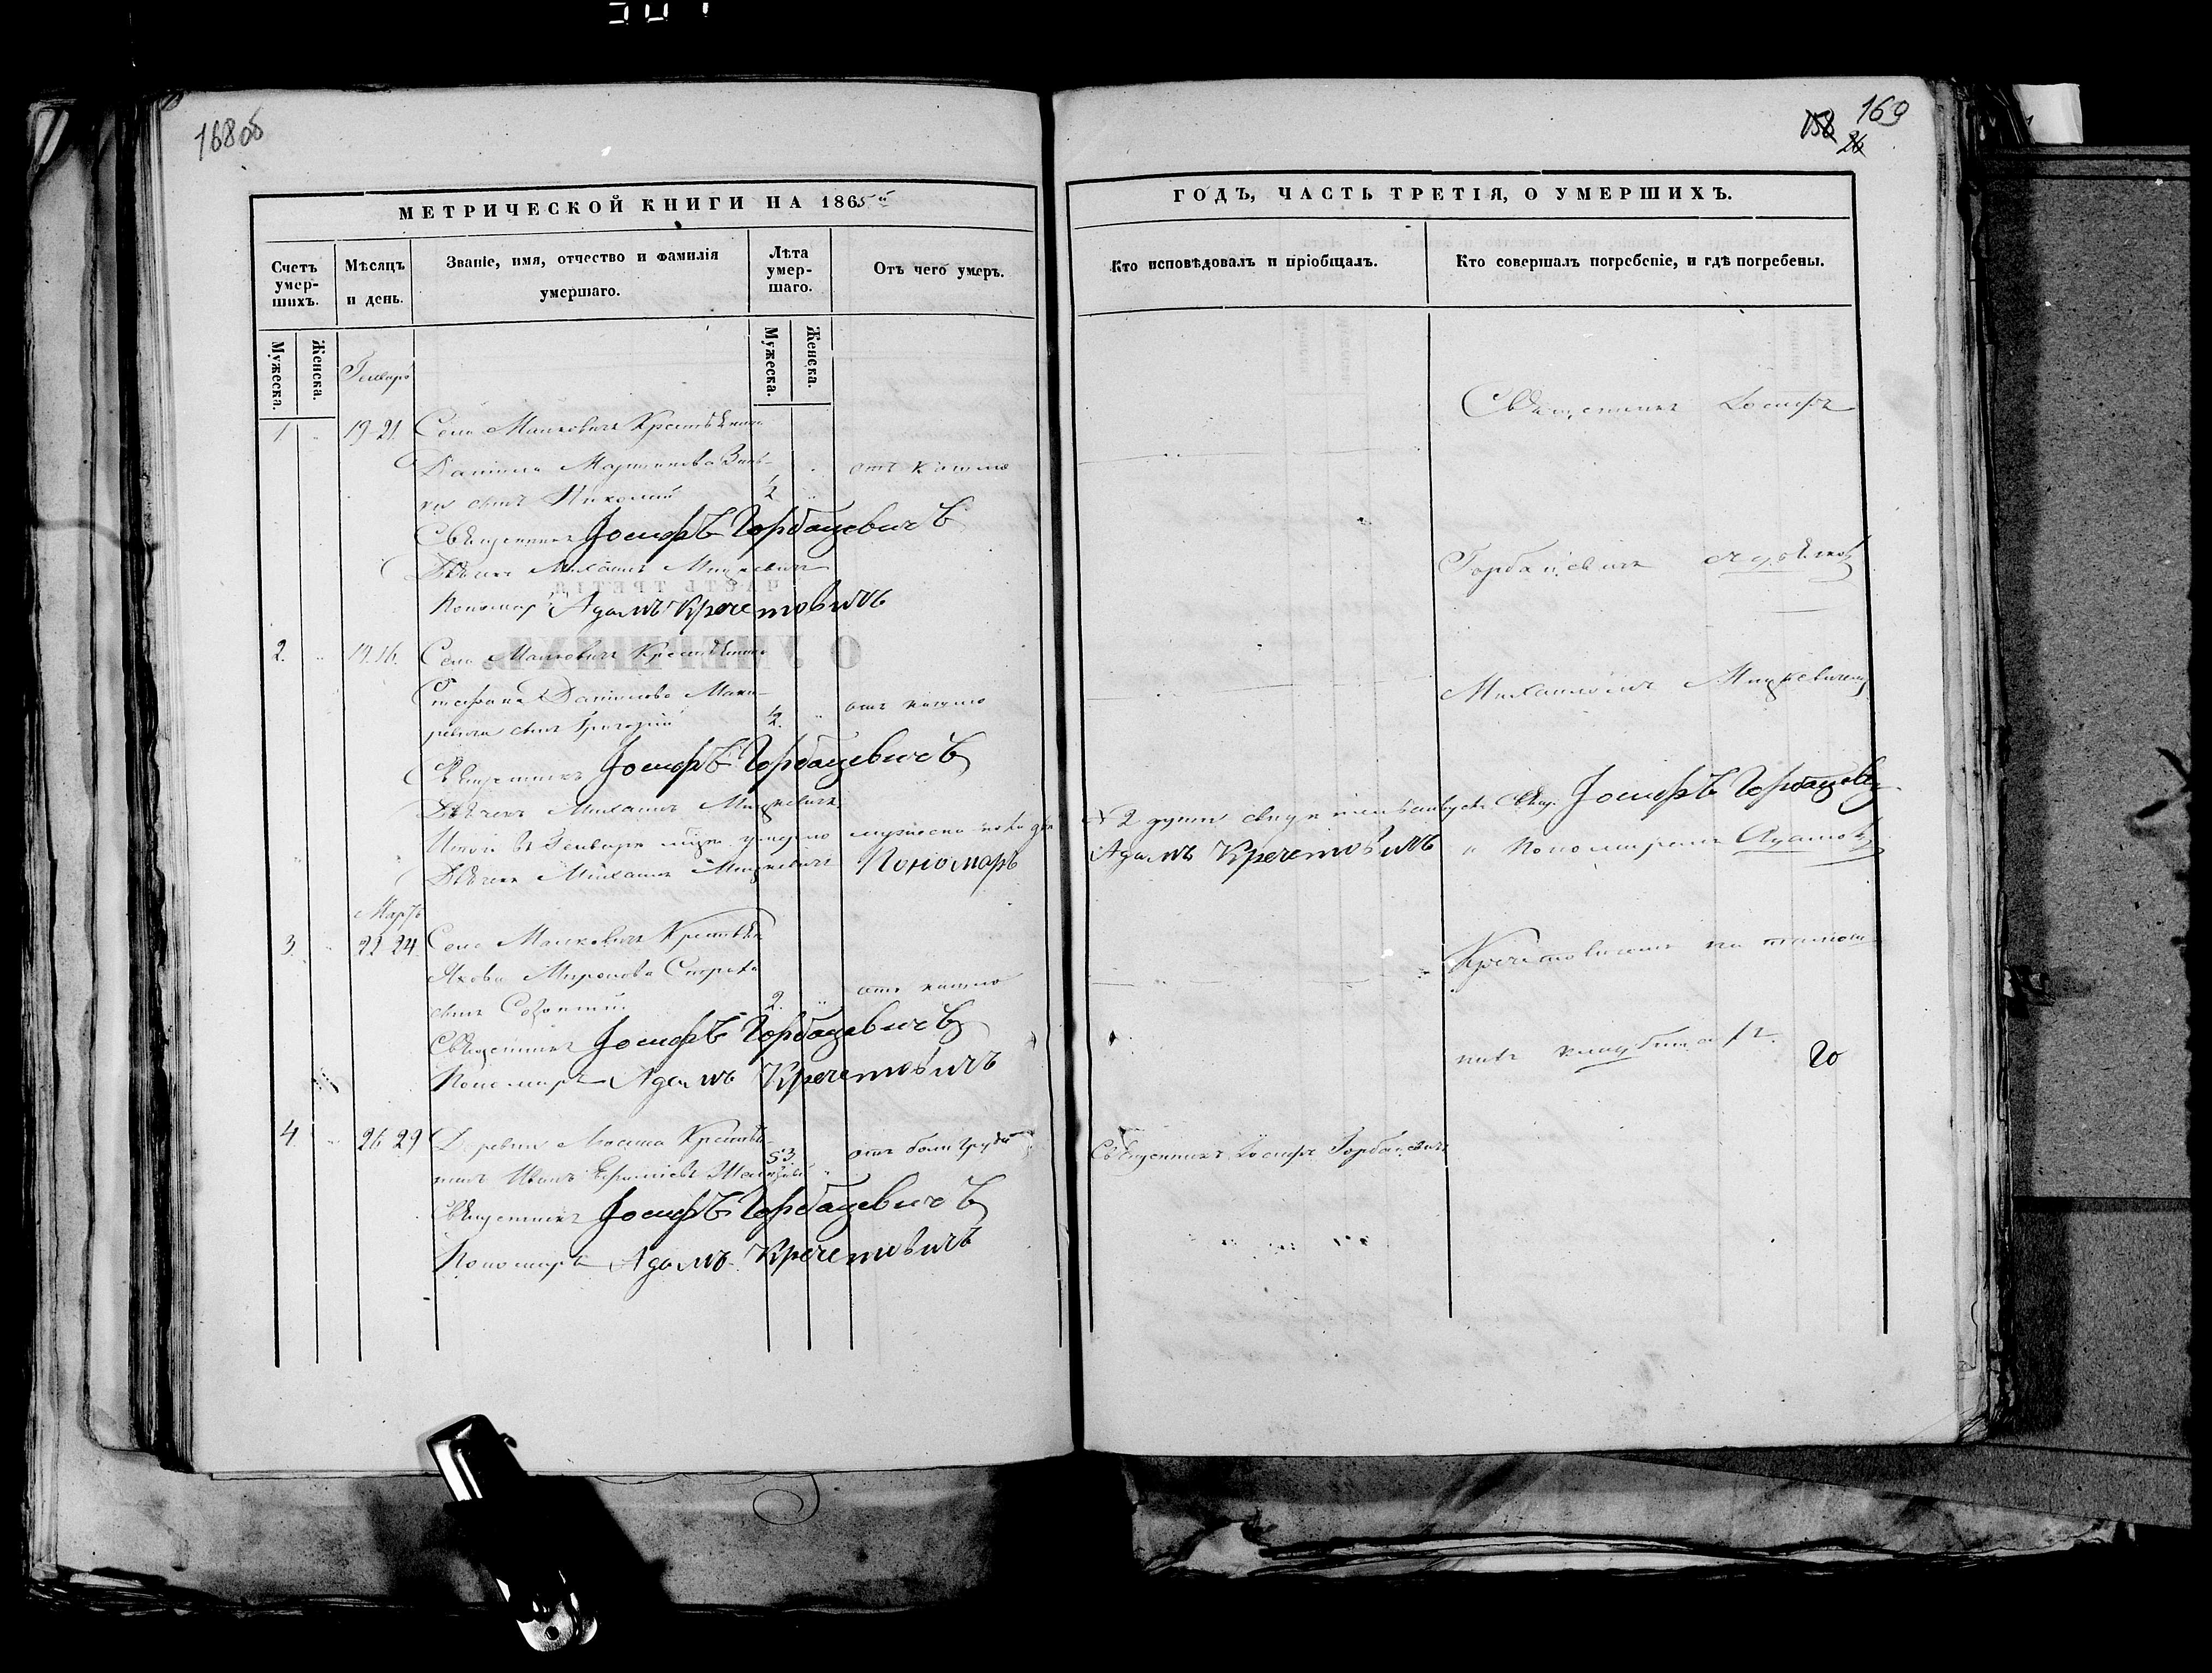 168об
МЕТРИЧЕСКОЙ КНИГИ НА 1865й
Счетъ умер-
шихъ.
Мужеска.
Женска.
Мѣсяцъ
и день.
Званіе, имя, отчество и фамилія
умершаго.
Лѣта
умер-
шаго.
Мужеска.
Женска.
Отъ чего умеръ.
Генварь
1 19-21. Села Малковичъ Крестьянина
Даніила Мартинова Зинь-
ки сынъ Николай 1/2 отъ кашлю
Священникъ Іосифъ Горбацевичъ
Дьячекъ Михаилъ Мицкевичъ
Пономарь Адамъ Кречетовичъ
2. Села Малковичъ Крестьянина
Стефана Даніилова Мака-
ревича сынъ Григорій 1/2. отъ кашлю
Священникъ Іосифъ Горбацевичъ
Дьячекъ Михаилъ Мицкевичъ
Итого въ Генварѣ умерло мужеска пола
Дьячекъ Михаилъ Мицкевичъ Пономарь
Мартъ
3. 22 24. Села Малковичъ Крестьян.
Якова Миронова
сынъ Созонтій 2. отъ кашлю
Священникъ Іосифъ Горбацевичъ
Пономарь Адамъ Кречетовичъ
4. 26 29 Деревни Крестья-
нинъ Иванъ 53. отъ боли груди
Священникъ Іосифъ Горбацевичъ
Пономарь Адамъ Кречетовичъ
158 169
26
ГОДЪ, ЧАСТЬ ТРЕТІЯ, О УМЕРШИХЪ.
Кто исповѣдовалъ и пріобщалъ.
Кто совершалъ погребеніе, и гдѣ погребены.
Священникъ Іосифъ
Горбацевичъ съ дьячкомъ
Михаиломъ Мицкевичемъ
2 души свидетельствуемъ Свящ. Іосифъ Горбацевичъ
Адамъ Кречетовичъ и Пономаремъ Адамомъ
Кречетовичемъ на тамош-
немъ кладбищѣ.
20
Священникъ Іосифъ Горбацевичъ